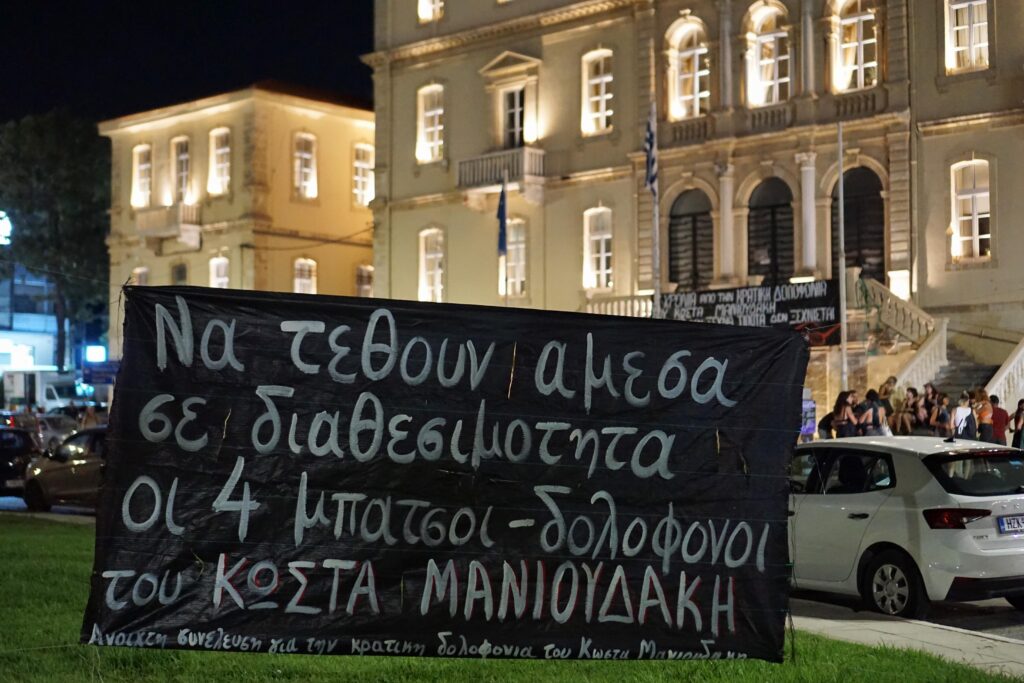 Να τεθουν αμεσα
σε διαθεσιμοτητα
οι 4 μπατσοι - δολοφονοι
του ΚΩΣΤΑ ΜΑΝΙΟΥΔΑΚΗ
Ανοιχτη συνελευση για την κρατικη δολοφονια του Κωστα Μανιουδακη
ΧΡΟΝΙΑ ΑΠΟ ΤΗΝ ΚΡΑΤΙΚΗ ΔΟΛΟΦΟΝΙΑ
ΤΟΥ ΚΩΣΤΑ ΜΑΝΙΟΥΔΑΚΗ
ΤΙΠΟΤΑ ΔΕΝ ΞΕΧΝΙΕΤΑΙ